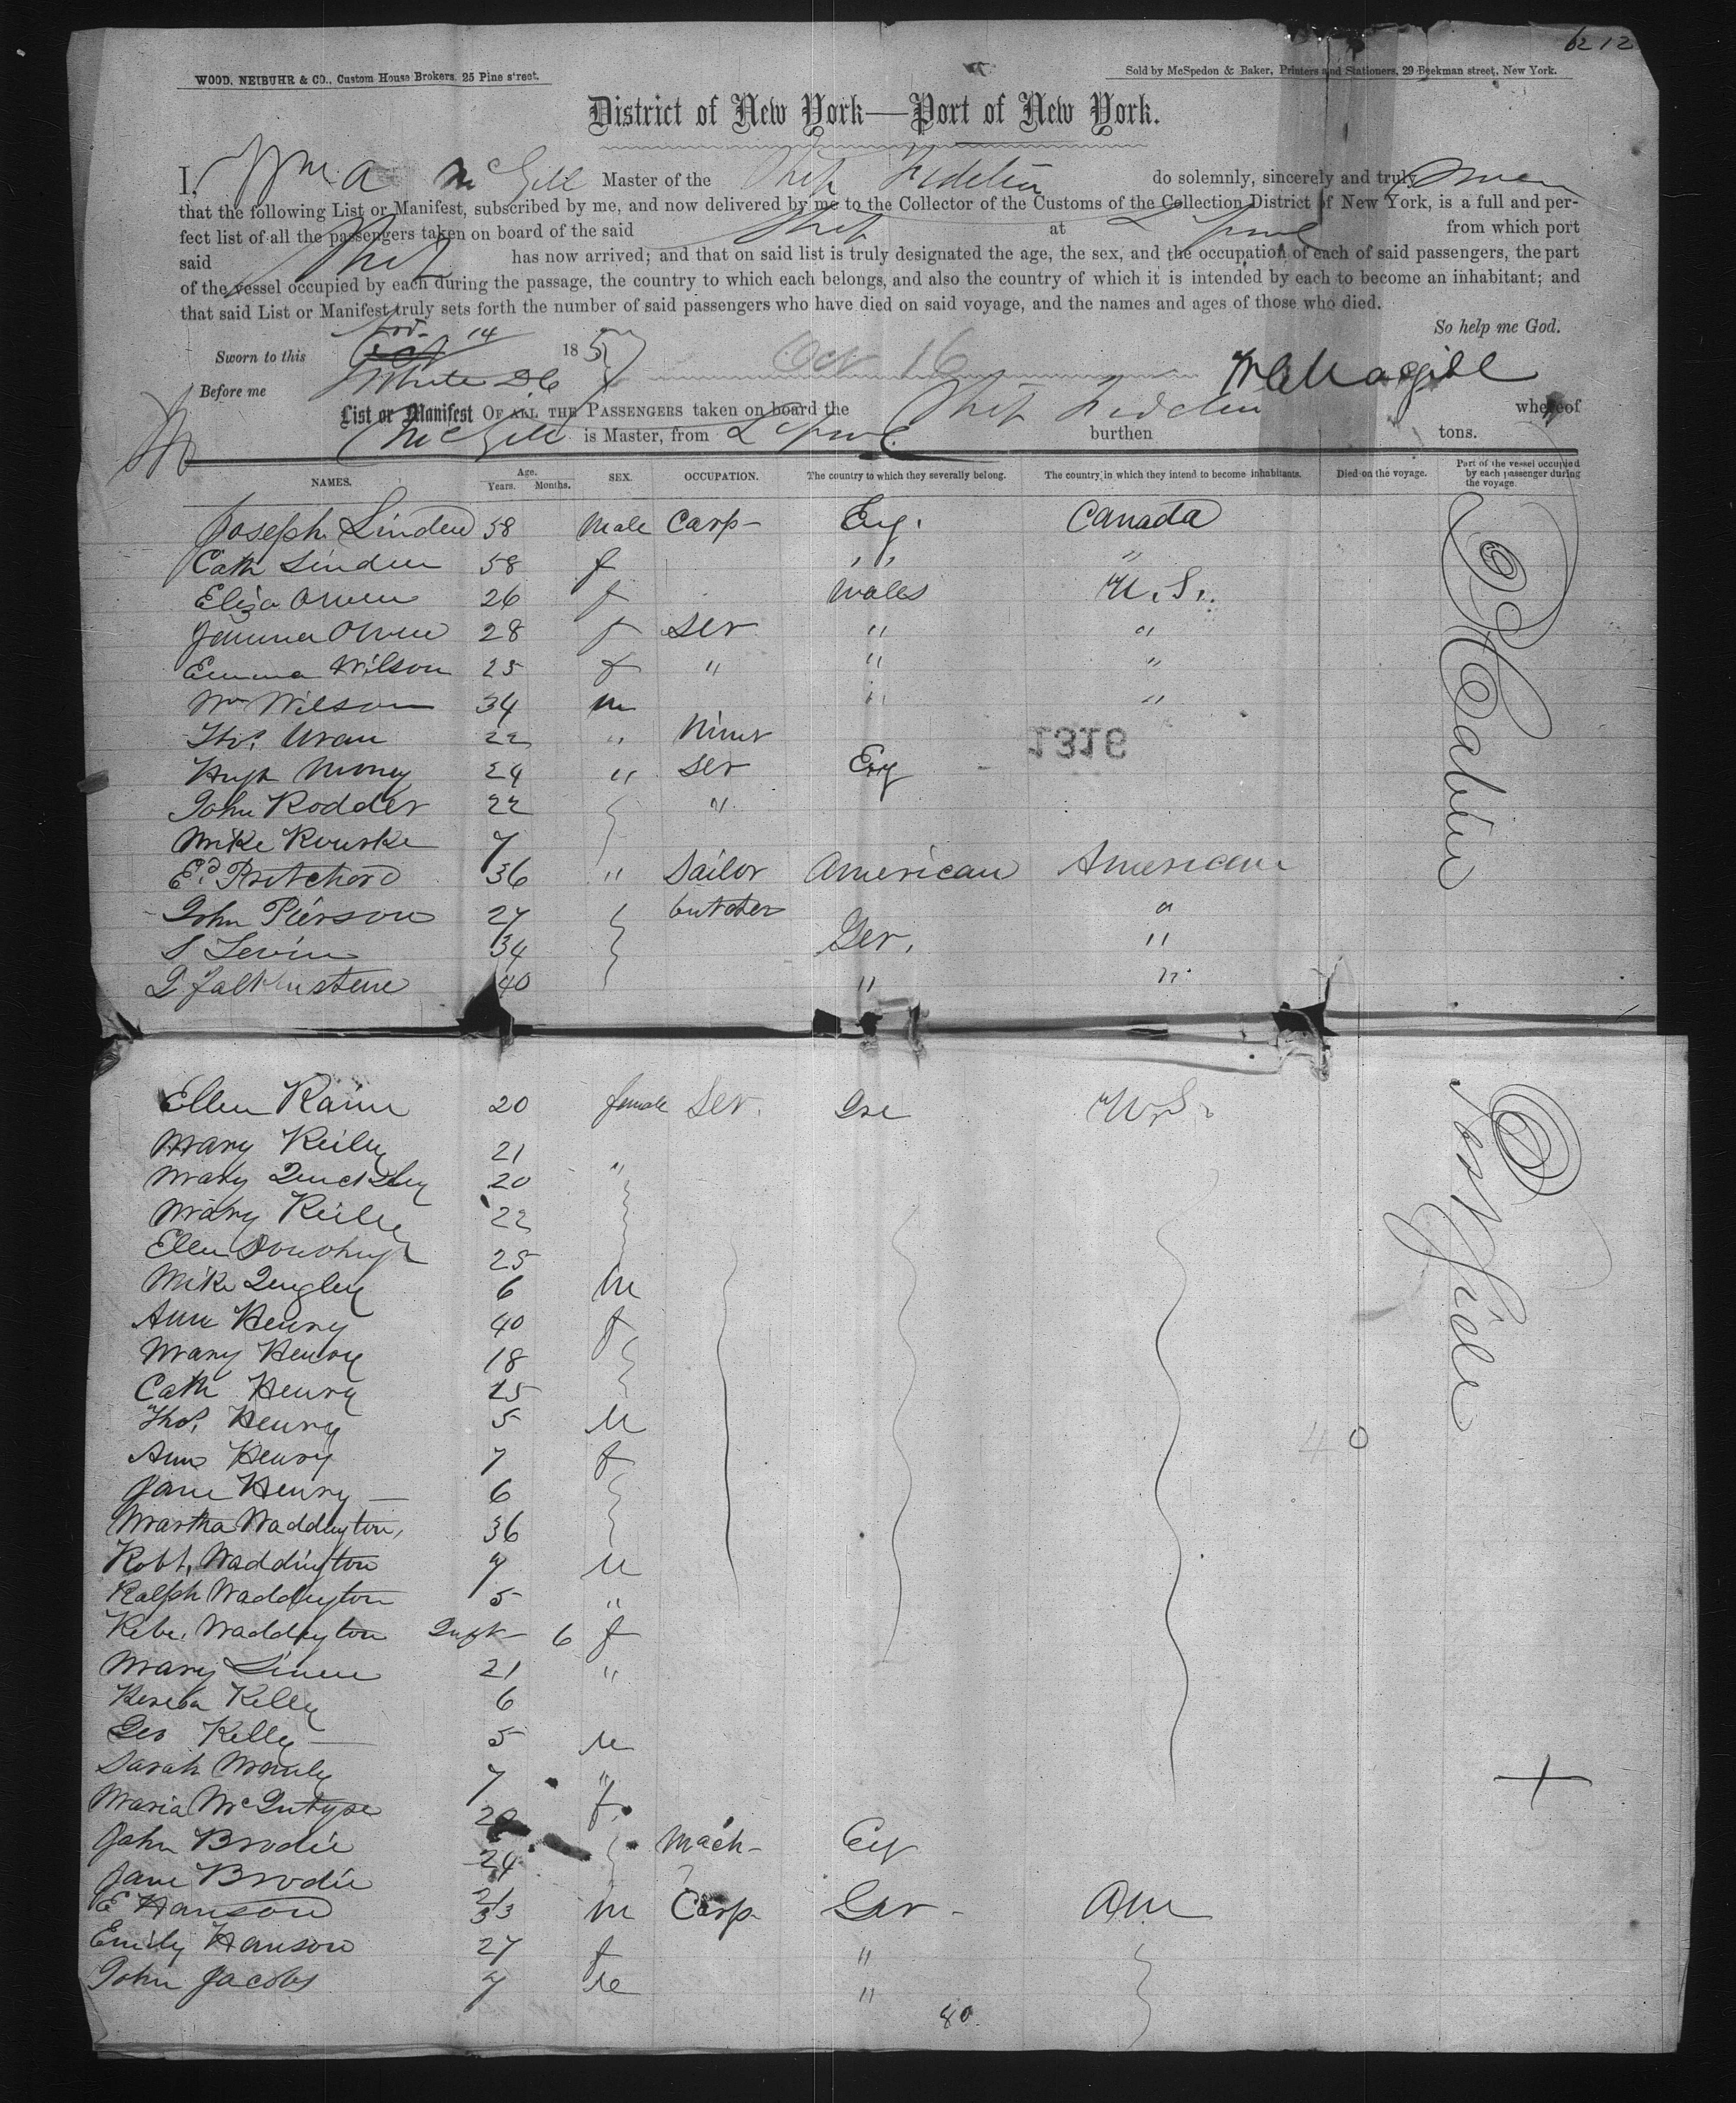 6212
WOOD, NEIBUHR & CO., Custom House Brokers, 25 Pine street.
Sold by McSpedon & Baker, Printers and Stationers, 29 Beekman street, New York.
District of New York—Port of New York.
I, Wm A McGill Master of the Ship Fidelia do solemnly, sincerely and truly swear
that the following List or Manifest, subscribed by me, and now delivered by me to the Collector of the Customs of the Collection District of New York, is a full and per-
fect list of all the passengers taken on board of the said Ship at L'pool from which port
said Ship has now arrived; and that on said list is truly designated the age, the sex, and the occupation of each of said passengers, the part
of the vessel occupied by each during the passage, the country to which each belongs, and also the country of which it is intended by each to become an inhabitant; and
that said List or Manifest truly sets forth the number of said passengers who have died on said voyage, and the names and ages of those who died.
So help me God.
Sworn to this Nov. 14 1857 Oct 16
Before me White DC
List or Manifest OF ALL THE PASSENGERS taken on board the Ship Fidelia whereof
McGill is Master, from L'pool burthen tons.
NAMES. Age. Years. Months. SEX. OCCUPATION. The country to which they severally belong. The country in which they intend to become inhabitants. Died on the voyage. Part of the vessel occupied by each passenger during the voyage.
Joseph Linden 58 Male Carp- Eng. Canada
Cath Linden 58 f " "
Eliza Owen 26 f Wales U.S.
Jemima Owen 28 f Ser " "
Emma Wilson 25 f " " "
Wm Wilson 34 m " "
Thos. Uran 22 " Miner
1316
Hugh Money 24 " Ser Eng
John Rodder 22 "
Mike Rourke 7
Ed. Pritchard 36 " Sailor American American
John Pierson 27 butcher "
S Levin 34 Ger. "
40 " "
2d Cabin
Ellen Kain 20 female Ser. Ire U.S.
Mary Reilly 21 "
Mary 20
Mary Reilly 22
Ellen Donohugh 25
Mike Quigley 6 m
Ann Henry 40 f
Mary Henry 18
Cath Henry 15
Thos. Henry 5 M
Ann Henry 7 f
40
Jane Henry 6
Martha Waddington, 36
Robt. Waddington 7 M
Ralph Waddington 5 "
Waddington Inft 6 f
Mary 21 "
Kelly 6
Geo Kelly 5 M
Sarah Manly 7 "
Maria McIntyre f
John Brodie 24 Mach- Eng
Jane Brodie 21
E Hanson 33 m Carp Ger- Am
Emily Hanson 27 f "
John Jacobs 7 M "
80.